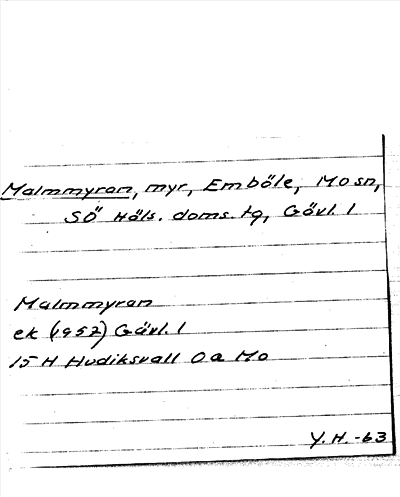 Malmmyran, myr, Emböle, Mo sn,
SÖ Häls. doms. tg, Gävl. l
Malmmyran
ek (1957) Gävl. l
15 H Hudiksvall 0a Mo
Y. H. -63